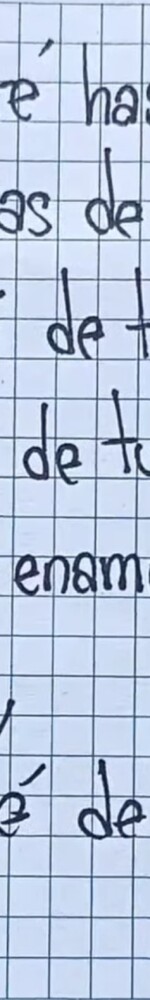 é has
as de
de t
de tu
enam
é de